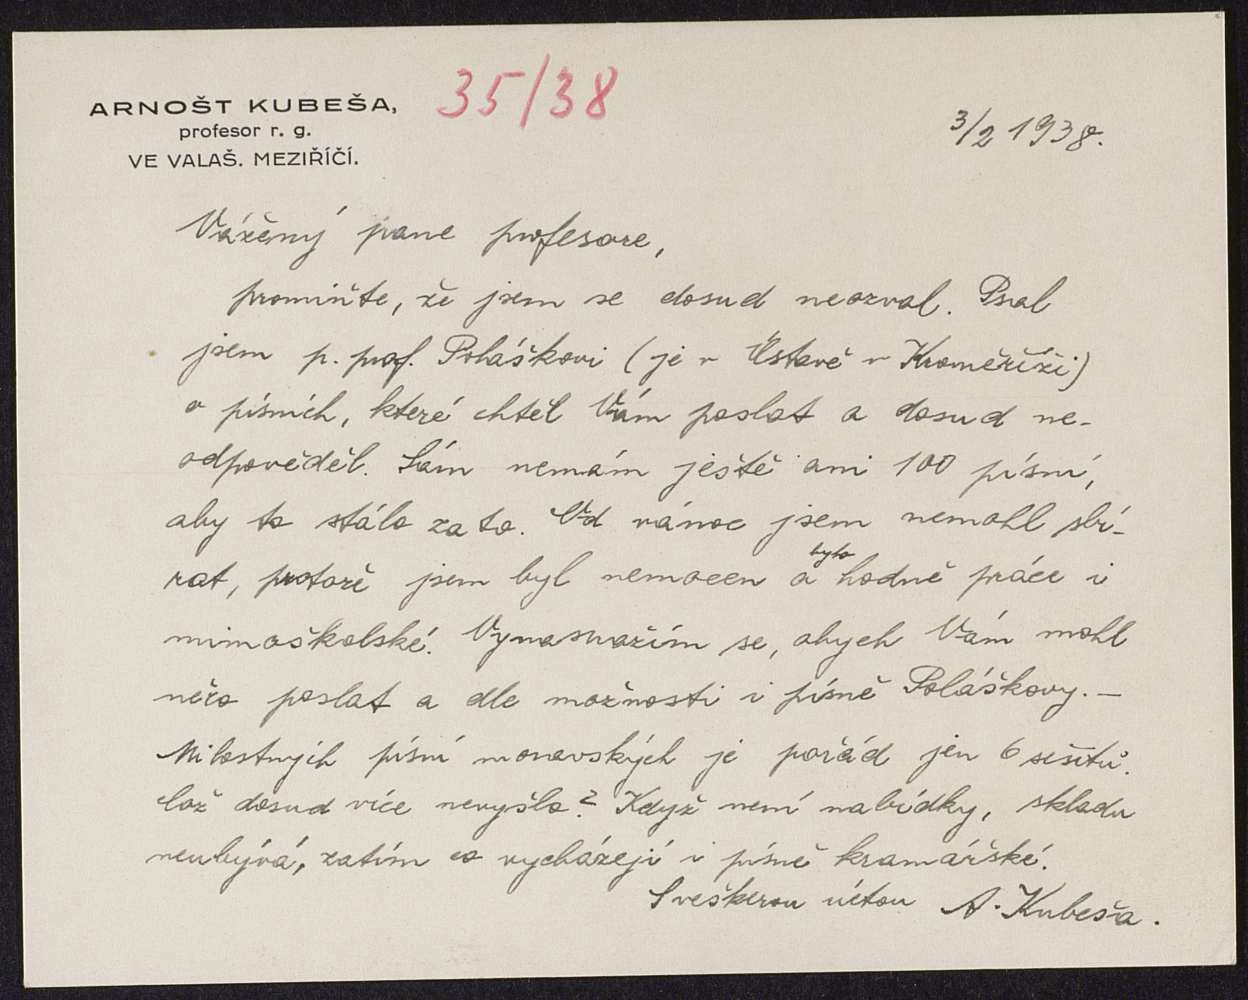 ARNOŠT KUBEŠA,
profesor r. g.
VE VALAŠ. MEZIŘÍČÍ.
35/38
3/2 1938.
Vážený pane profesore,
promiňte, že jsem se dosud neozval. Psal
jsem p. prof. Poláškovi (je v Ústavě v Kroměříži)
o písních, které chtěl Vám poslat a dosud ne-
odpověděl. Sám nemám ještě ani 100 písní,
aby to stálo za to. Od vánoc jsem nemohl sbí-
rat, protože jsem byl nemocen a bylo hodně práce i
mimoškolské. Vynasnažím se, abych Vám mohl
něco poslat a dle možnosti i písně Poláškovy. –
Milostných písní moravských je pořád jen 6 sešitů.
Což dosud více nevyšlo? Když není nabídky, skladu
neubývá, zatím co vycházejí i písně kramářské.
S veškerou úctou A. Kubeša.